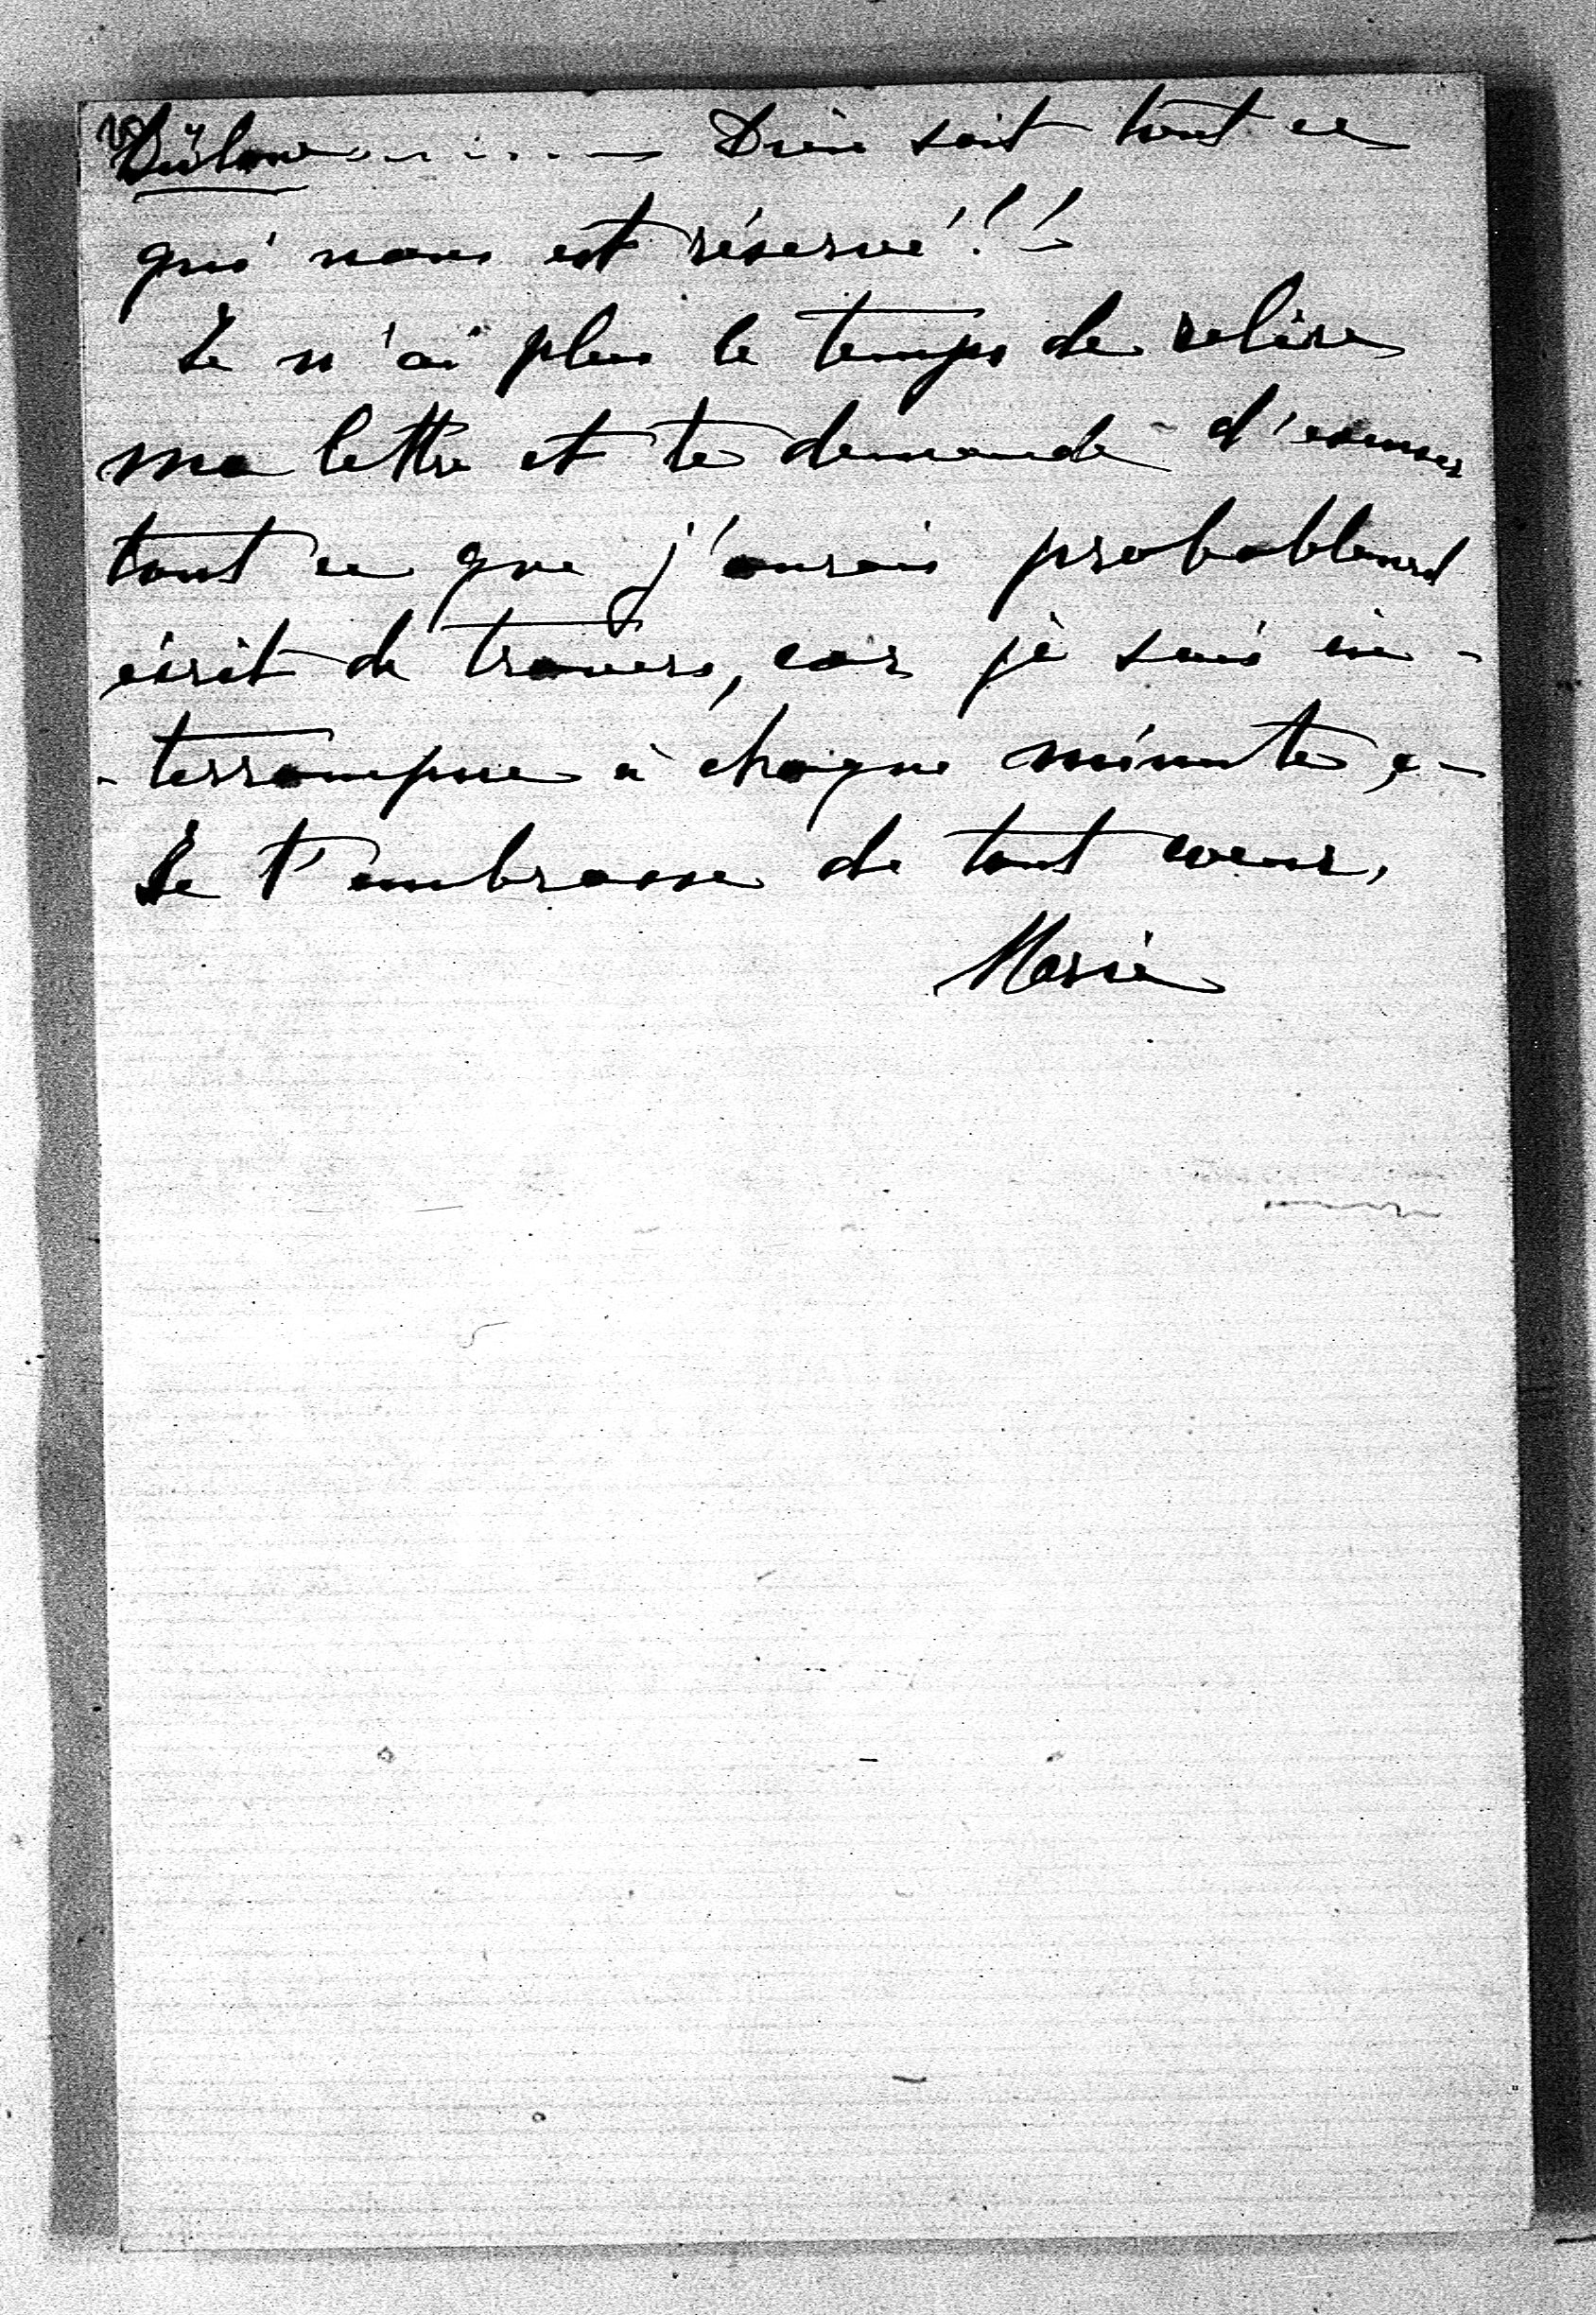 Bülow....... Dieu sait tout ce
qui nous est réservé!!
Je n'ai plus le temps de relire
ma lettre et te demande d'excuser
tout ce que j'aurais probablement
écrit de travers, car je suis in-
-terrompue à chaque minute,
Je t'embrasse de tout coeur,
Marie